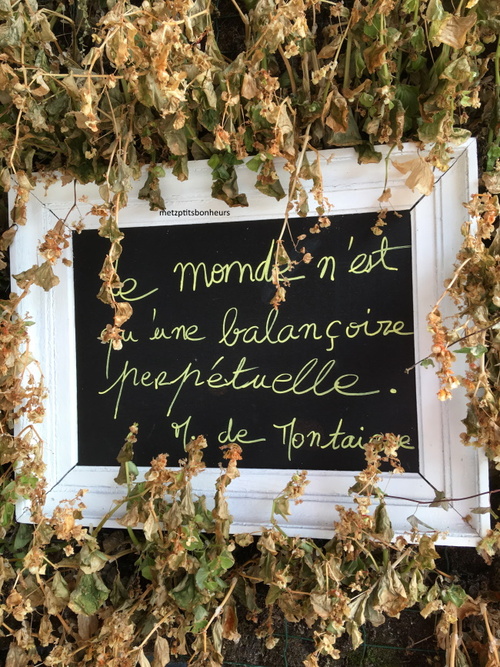 metzptitsbonheurs
Le monde n'est
qu'une balançoire
perpétuelle.
M. de Montaigne